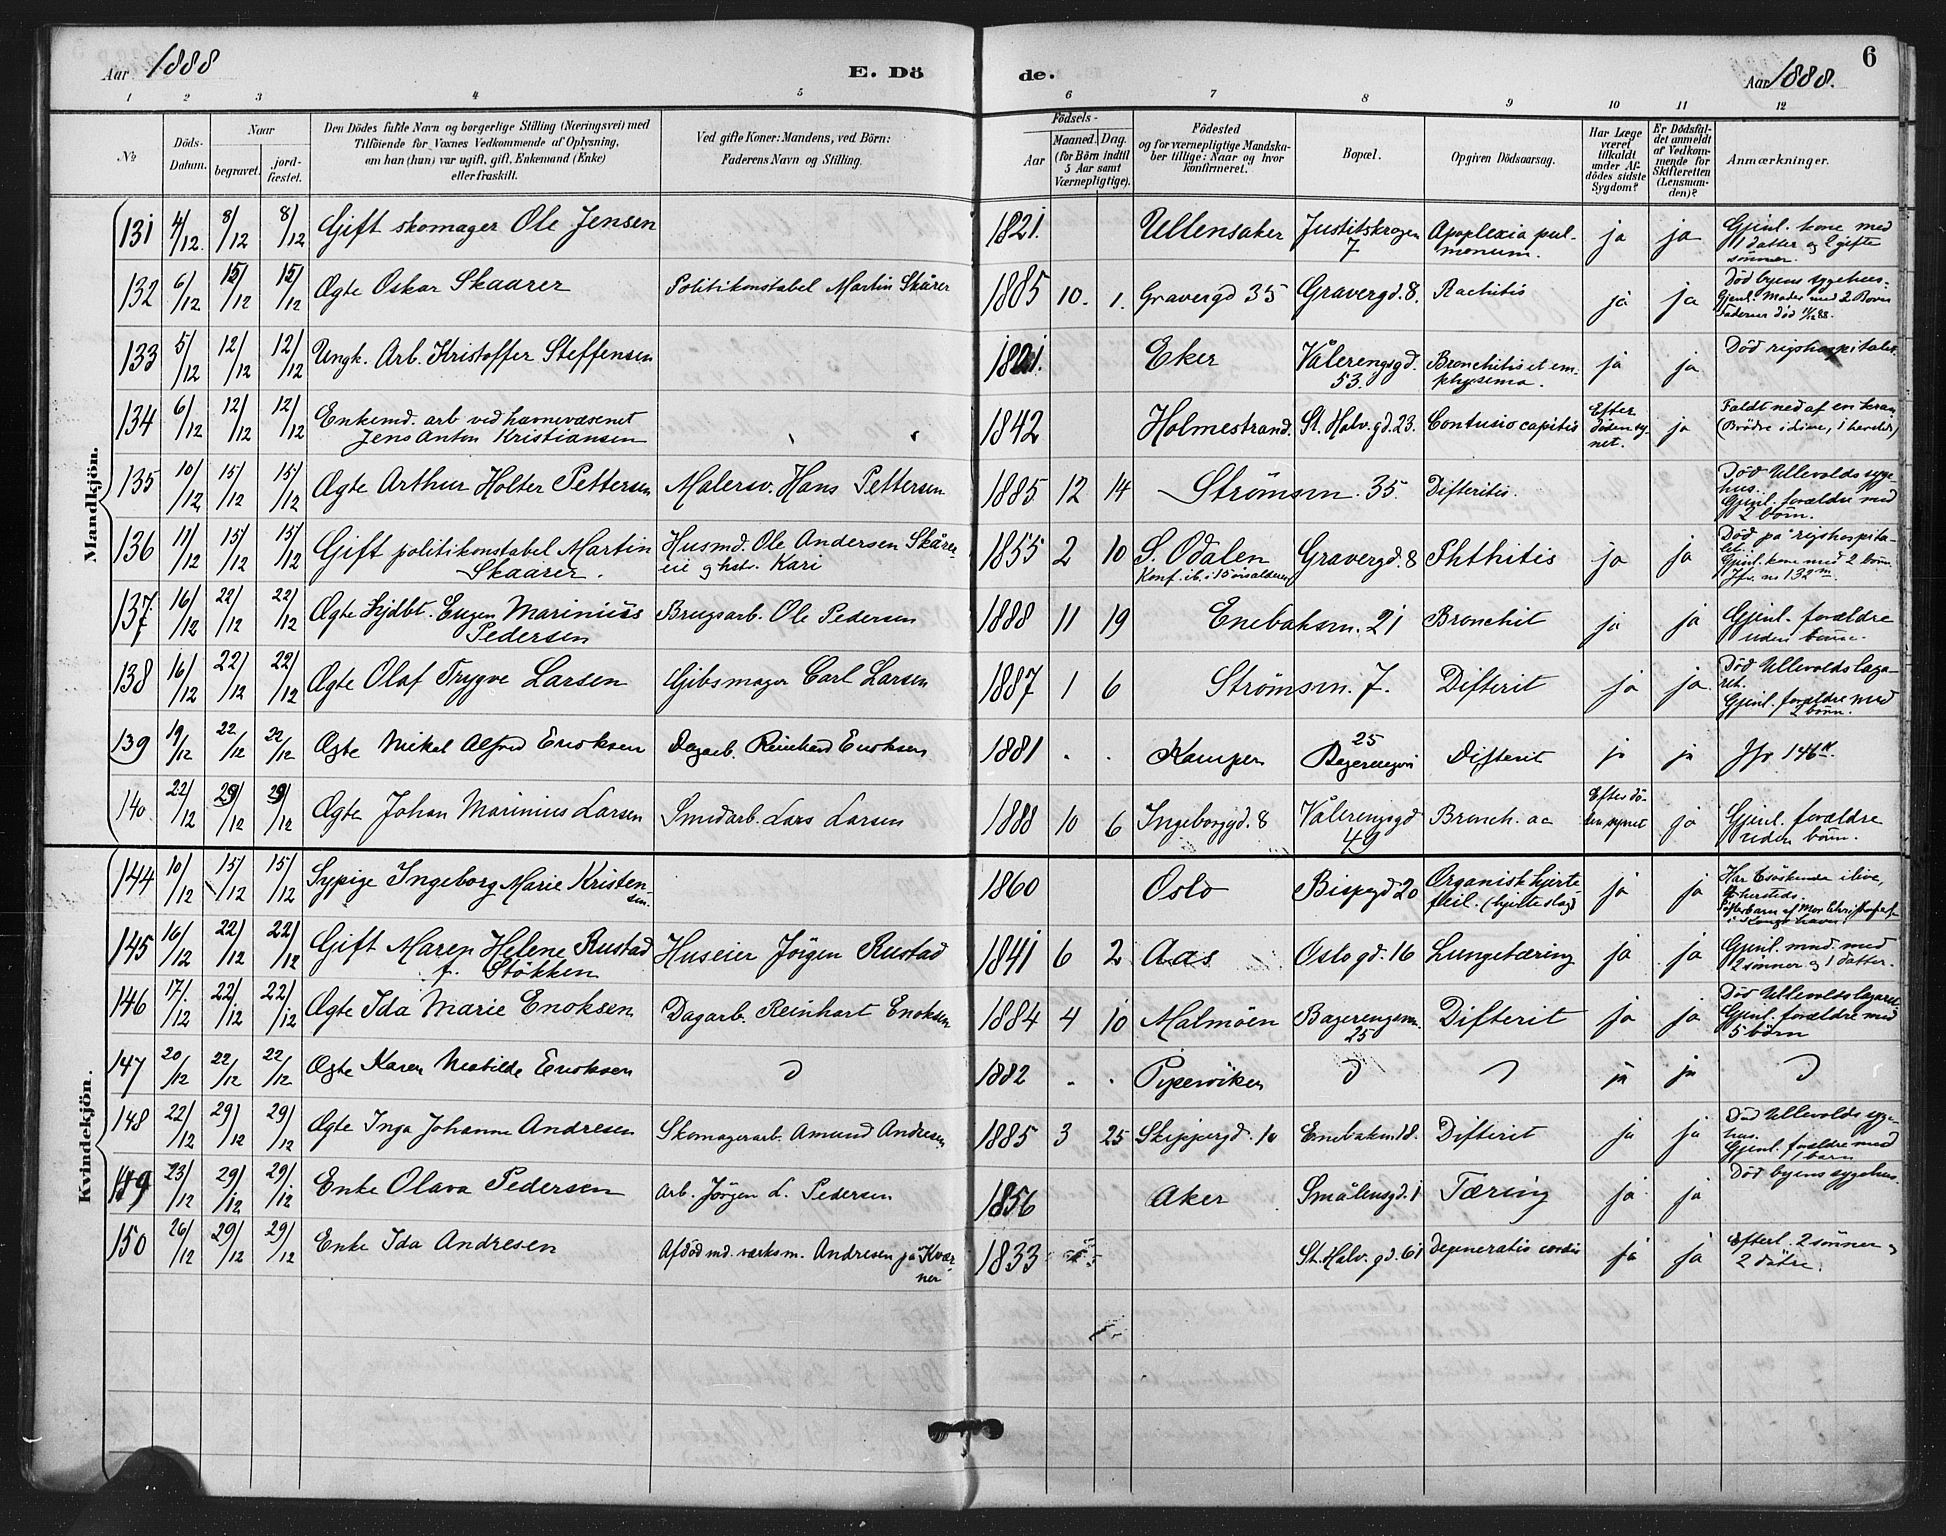 Aar 1888
E. Dö
de.
Aar 1888.
6
1 2 3 4 5 6 7 8 9 10 11 12
No
Döds-Datum.
Naar
begravet.
jord-fæstet.
Den Dödes fulde Navn og borgerlige Stilling (Næringsvei) med
Tilföiende for Voxnes Vedkommende af Oplysning,
om han (hun) var ugift, gift, Enkemand (Enke)
eller fraskilt.
Ved gifte Koner: Mandens, ved Börn:
Faderens Navn og Stilling.
Födsels-
Aar
Maaned. Dag.
(for Börn indtil
5 Aar samt
Værnepligtige).
Födested
og for værnepligtige Mandska-
ber tillige: Naar og hvor
konfirmeret.
Bopæl.
Opgiven Dödsaarsag.
Har Læge
været
tilkaldt
under Af-
dödes sidste
Sygdom?
Er Dödsfal-
det anmeldt
af Vedkom-
mende for
Skifteretten
(Lensman-
den)?
Anmærkninger.
Mandkjön.
131 4/12. 8/12 8/12 Gift skomager Ole Jensen 1821. Ullensaker Justitskrogen 7 Apoplexia pul-monum. ja ja Gjenl. kone med 1 datter og 2 gifte sønner.
132 6/12 15/12 15/12 Ægte Oskar Skaarer Politikonstabel Martin Skårer 1885 10. 1. Gravergd 35 Gravergd. 8. Rachitis ja ja Død byens sygehus. Gjenl. Moder med 2 Born Faderen død 11/12 88.
133 5/12 12/12 12/12 Ungk. Arb. Kristoffer Steffensen 1821. Eker Vålerengsgd. 53. Bronchitis et em-physema. ja ja Død rigshospitalet.
134 6/12 12/12 12/12 Enkemd. arb ved havnevæsenet Jens Anton Kristiansen 1842 Holmestrand. St. Halv. gd. 23. Contusio capitis Efter døden sy-net. ja Faldt ned af en kran (Brødre i live,
135 10/12 15/12 15/12 Ægte Arthur Holter Pettersen Malersv. Hans Pettersen 1885 12 14 Strømsvn. 35. Difteritis. Død Ullevolds syge-hus. Gjenl. forældre med 2 børn.
136 11/12 15/12 15/12 Gift politikonstabel Martin Skaarer. Husmd. Ole Andersen Skårer-eie og hst. Kari 1855 2 10 S. Odalen Konf. ib. i 15 årsalderen Gravergd. 8 Phthitis ja ja Død på rigshospita-let. Gjenl. kone med 2 børn. Jfr. no 132 m
137 16/12 22/12 22/12 Ægte hjdbt. Eugen Marinius Pedersen Brugsarb. Ole Pedersen 1888 11 19 Enebaksvn. 21 Bronchit ja ja Gjenl. forældre uden børn.
138 16/12 22/12 22/12 Ægte Olaf Trygve Larsen Gibsmager Carl Larsen 1887 1 6 Strømsvn. 7. Difterit ja ja Død Ullevolds laza-ret. Gjenl. forældre med 2 børn.
139 19/12 22/12 22/12 Ægte Mikal Alfred Enoksen Dagarb. Reinhard Enoksen 1881 . . Kampen 25 Difterit ja ja Jfr 146 K.
140 22/12 29/12 29/12 Ægte Johan Marinius Larsen Smedarb. Lars Larsen 1888 10 6 Ingeborggd. 8 Vålerengsgd 49 Bronch. aa Efter dø-den synet ja Gjenl. forældre uden børn.
Kvindekjön.
144 10/12 15/12 15/12 Sypige Ingeborg Marie Kristen-sen. 1860 Oslo Bispegd 20 Organisk hjerte-feil. (hjerteslag) ja ja Har søskende i live,
145 16/12 22/12 22/12 Gift Maren Helene Rustad f. Støkken Huseier Jörgen Rustad 1841 6 2 Aas Oslo gd. 16 Lungetæring ja ja Gjenl. mnd. med 2 sønner og 1 datter.
146 17/12 22/12 22/12 Ægte Ida Marie Enoksen Dagarb. Reinhart Enoksen 1884 4 10 Malmöen Bagerengsvn. 25 Difterit ja ja Død Ullevolds lazaret. Gjenl. forældre med 5 børn
147 20/12 22/12 22/12 Ægte Karen Mathilde Enoksen 1882 . . Pipervïken ja ja
148 22/12 29/12 29/12 Ægte Inga Johanne Andresen Skomagerarb. Amund Andresen 1885 3 25 Skippergd. 10 Enebakvn 18. Difterit ja ja Død Ullevolds syge-hus. Gjenl. forældre med 1 barn
149 23/12 29/12 29/12 Enke Olava Pedersen Arb. Jörgen L. Pedersen 1856 Aker Smålensgd. 1 Tæring ja ja Død byens sygehus.
150 26/12 29/12 29/12 Enke Ida Andresen Afdöd md. værksm. Andresen på Kvær-ner 1833 St. Halv. gd. 61 Degeneratis cordis ja ja Efterl. 2 sønner og 2 døtre.